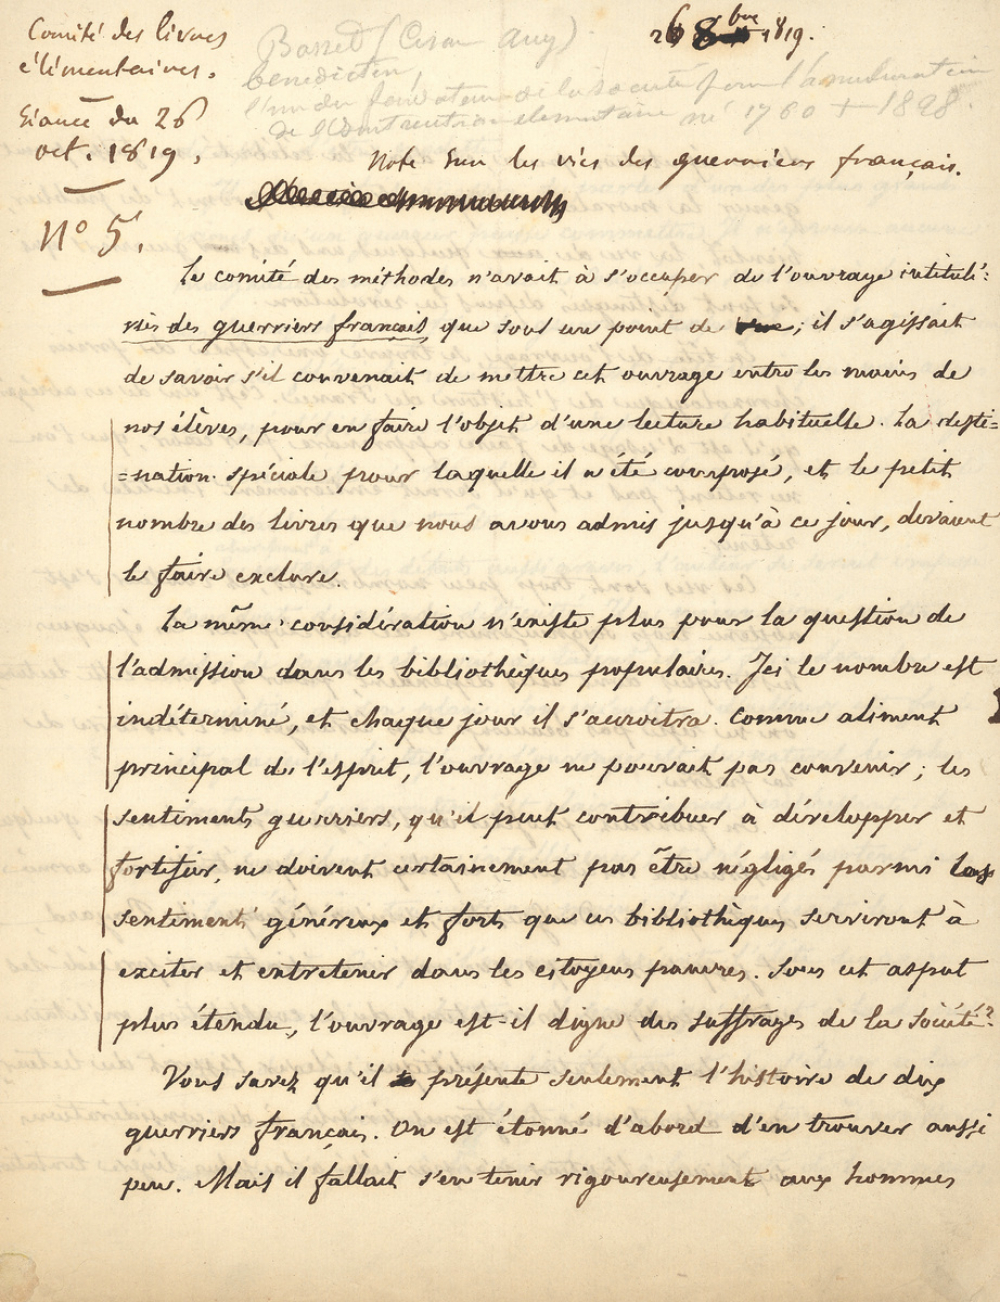 Comité des livres
élémentaires.
Séance du 26
oct. 1819.
N° 5.
26 8bre 1819.
Basset (César Aug)
bénédictin,
l'un des fondateurs de la société pour l'amélioration
de l'instruction élémentaire né 1760 + 1828.
Note sur les vies des guerriers français.
Le comité des méthodes n'avait à s'occuper de l'ouvrage intitulé:
vies des guerriers français, que sous un point de vue; il s'agissait
de savoir s'il convenait de mettre cet ouvrage entre les mains de
nos élèves, pour en faire l'objet d'une lecture habituelle. La desti=
=nation spéciale pour laquelle il a été composé, et le petit
nombre des livres que nous avons admis jusqu'à ce jour, devaient
le faire exclure.
La même considération n'existe plus pour la question de
l'admission dans les bibliothèques populaires. Ici le nombre est
indéterminé, et chaque jour il s'accroitra. Comme aliment
principal de l'esprit, l'ouvrage ne pouvait pas convenir; les
sentiments guerriers, qu'il peut contribuer à développer et
fortifier, ne doivent certainement pas être négligés parmi les
sentiments généreux et forts que ces bibliothèques serviront à
exciter et entretenir dans les citoyens pauvres. Sous cet aspect
plus étendu, l'ouvrage est-il digne des suffrages de la société?
Vous savez qu'il présente seulement l'histoire de dix
guerriers français. On est étonné d'abord d'en trouver aussi
peu. Mais il fallait s'en tenir rigoureusement aux hommes